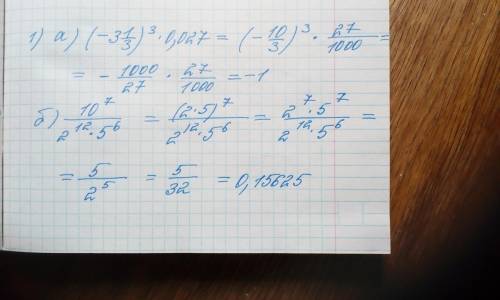 1) а) (-3 1/3)³ · 0,027 = (-10/3)³ · 27/1000 =
= - 1000/27 · 27/1000 = -1
б) 10⁷/(2¹² · 5⁶) = (2·5)⁷/(2¹² · 5⁶) = (2⁷ · 5⁷)/(2¹² · 5⁶) =
= 5/2⁵ = 5/32 = 0,15625